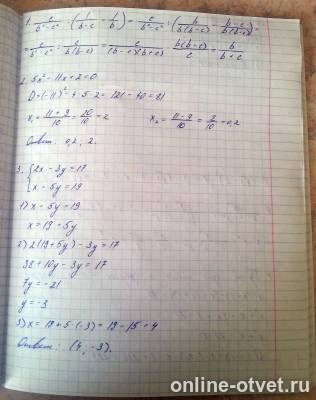 1. c/(b²-c²) : (1/(b-c) - 1/b) = c/(b²-c²) : (b/(b(b-c)) - (b-c)/(b(b-c))) =
= c/(b²-c²) : c/(b(b-c)) = c/((b-c)(b+c)) · b(b-c)/c = b/(b+c)
2. 5x² - 11x + 2 = 0
D = (-11)² - 4 · 5 · 2 = 121 - 40 = 81
x₁ = (11+9)/10 = 20/10 = 2 x₂ = (11-9)/10 = 2/10 = 0,2
Ответ: 0,2; 2.
3. {2x - 3y = 17
x - 5y = 19
1) x - 5y = 19
x = 19 + 5y
2) 2(19+5y) - 3y = 17
38 + 10y - 3y = 17
7y = -21
y = -3
3) x = 19 + 5 · (-3) = 19 - 15 = 4
Ответ: (4; -3).
online-otvet.ru